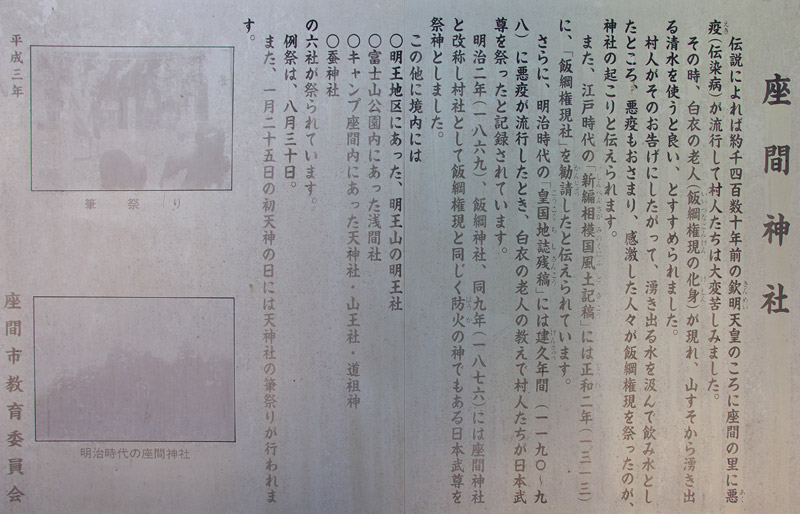 座間神社
伝説によれば約千四百数十年前の欽明天皇のころに座間の里に悪
疫(伝染病)が流行して村人たちは大変苦しみました。
その時、白衣の老人(飯綱権現の化身)が現れ、山すそから湧き出
る清水を使うと良い、とすすめられました。
村人がそのお告げにしたがって、湧き出る水を汲んで飲み水とし
たところ、悪疫もおさまり、感激した人々が飯綱権現を祭ったのが、
神社の起こりと伝えられます。
また、江戸時代の「新編相模国風土記稿」には正和二年(一三一三)
に、「飯綱権現社」を勧請したと伝えられています。
さらに、明治時代の「皇国地誌残稿」には建久年間(一一九〇～九
八)に悪疫が流行したとき、白衣の老人の教えで村人たちが日本武
尊を祭ったと記録されています。
明治二年(一八六九)、飯綱神社、同九年(一八七六)には座間神社
と改称し村社として飯綱権現と同じく防火の神でもある日本武尊を
祭神としました。
この他に境内には
〇明王地区にあった、明王山の明王社
〇富士山公園内にあった浅間社
〇キャンプ座間内にあった天神社・山王社・道祖神
〇蚕神社
の六社が祭られています。
例祭は、八月三十日。
また、一月二十五日の初天神の日には天神社の筆祭りが行われま
す。
筆祭り
明治時代の座間神社
平成三年
座間市教育委員会